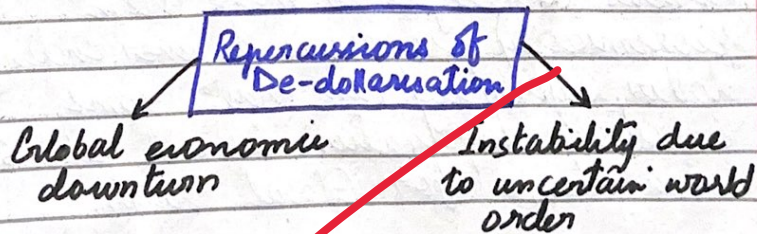 Repercussions of
De-dollarisation
Global economic
downturn
Instability due
to uncertain world
order